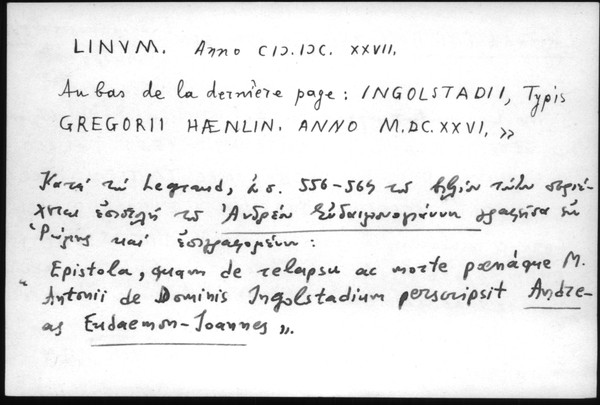 LINVM. Anno CIƆ.IƆC. XXVII.
Au bas de la dernière page : INGOLSTADII, Typis
GREGORII HÆNLIN. ANNO M.DC.XXVI. »
Κατά τόν Legrand, ἐν σ. 556-569 τοῦ βιβλίου τούτου περιέ-
χεται ἐπιστολή τοῦ Ἀνδρέου Εὐδαιμονογιάννη γραφεῖσα ἐν
Ῥώμῃ καί ἐπιγραφομένη :
" Epistola, quam de relapsu ac morte pœnâque M.
Antonii de Dominis Ingolstadium perscripsit Andre-
as Eudaemon-Joannes ".